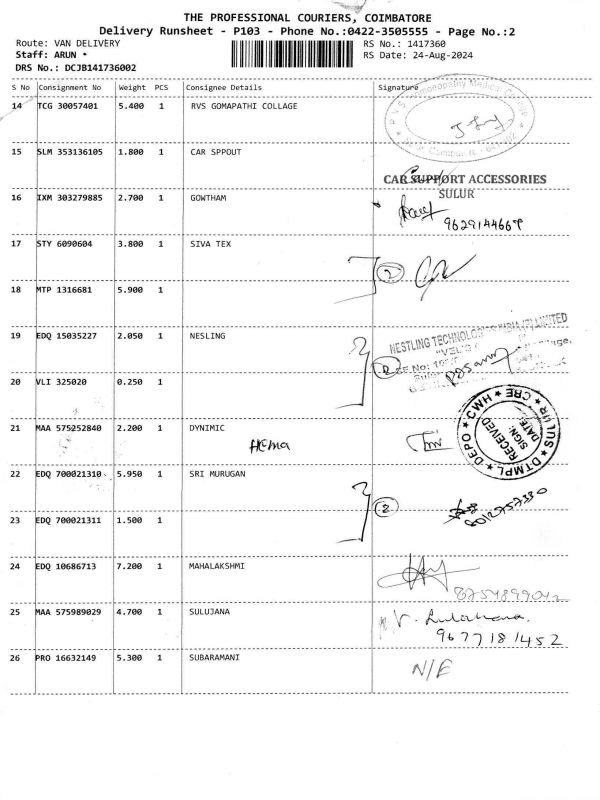 THE PROFESSIONAL COURIERS, COIMBATORE
Delivery Runsheet - P103 - Phone No.:0422-3505555 - Page No.:2
Route: VAN DELIVERY RS No.: 1417360
Staff: ARUN * RS Date: 24-Aug-2024
DRS No.: DCJB141736002
S No Consignment No Weight PCS Consignee Details Signature
14 TCG 30057401 5.400 1 RVS GOMAPATHI COLLAGE
15 SLM 353136105 1.800 1 CAR SPPOUT
CAR SUPPORT ACCESSORIES
SULUR
16 IXM 303279885 2.700 1 GOWTHAM
9629144669
17 STY 6090604 3.800 1 SIVA TEX
2
18 MTP 1316681 5.900 1
19 EDQ 15035227 2.050 1 NESLING
NESTLING TECHNOLOGIES INDIA (P) LIMITED
2
20 VLI 325020 0.250 1
21 MAA 575252840 2.200 1 DYNIMIC
HEMA
DTMPL * SULUR * CBE * CWH * DEPO
RECEIVED
SIGN:
DATE:
22 EDQ 700021310 5.950 1 SRI MURUGAN
2
23 EDQ 700021311 1.500 1
24 EDQ 10686713 7.200 1 MAHALAKSHMI
25 MAA 575989029 4.700 1 SULUJANA
9677181452
26 PRO 16632149 5.300 1 SUBARAMANI
N/E